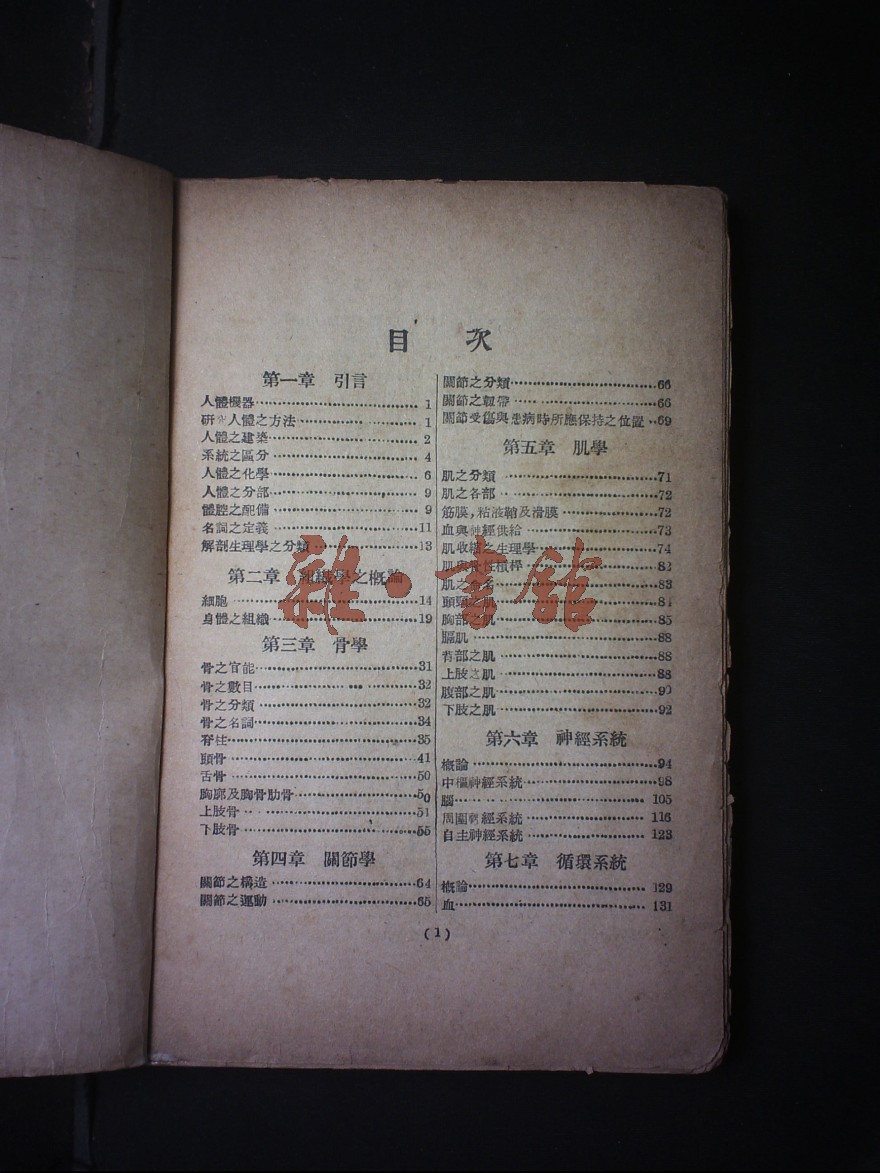 目 次
第一章 引言
人體機器 1
研究人體之方法 1
人體之建築 2
系統之區分 4
人體之化學 6
人體之分部 9
體腔之配備 9
名詞之定義 11
解剖生理學之分類 13
第二章 組織學之概論
細胞 14
身體之組織 19
第三章 骨學
骨之官能 31
骨之數目 32
骨之分類 32
骨之名詞 34
脊柱 35
頭骨 41
舌骨 50
胸廓及胸骨肋骨 50
上肢骨 51
下肢骨 55
第四章 關節學
關節之構造 64
關節之運動 65
關節之分類 66
關節之韌帶 66
關節受傷與患病時所應保持之位置 69
第五章 肌學
肌之分類 71
肌之各部 72
筋膜,粘液鞘及滑膜 72
血與神經供給 73
肌收縮之生理學 74
肌與骨性槓桿 82
肌之 83
頭頸之肌 84
胸部之肌 85
膈肌 88
背部之肌 88
上肢之肌 88
腹部之肌 90
下肢之肌 92
第六章 神經系統
概論 94
中樞神經系統 98
腦 105
周圍神經系統 116
自主神經系統 123
第七章 循環系統
概論 129
血 131
(1)
雜·書館